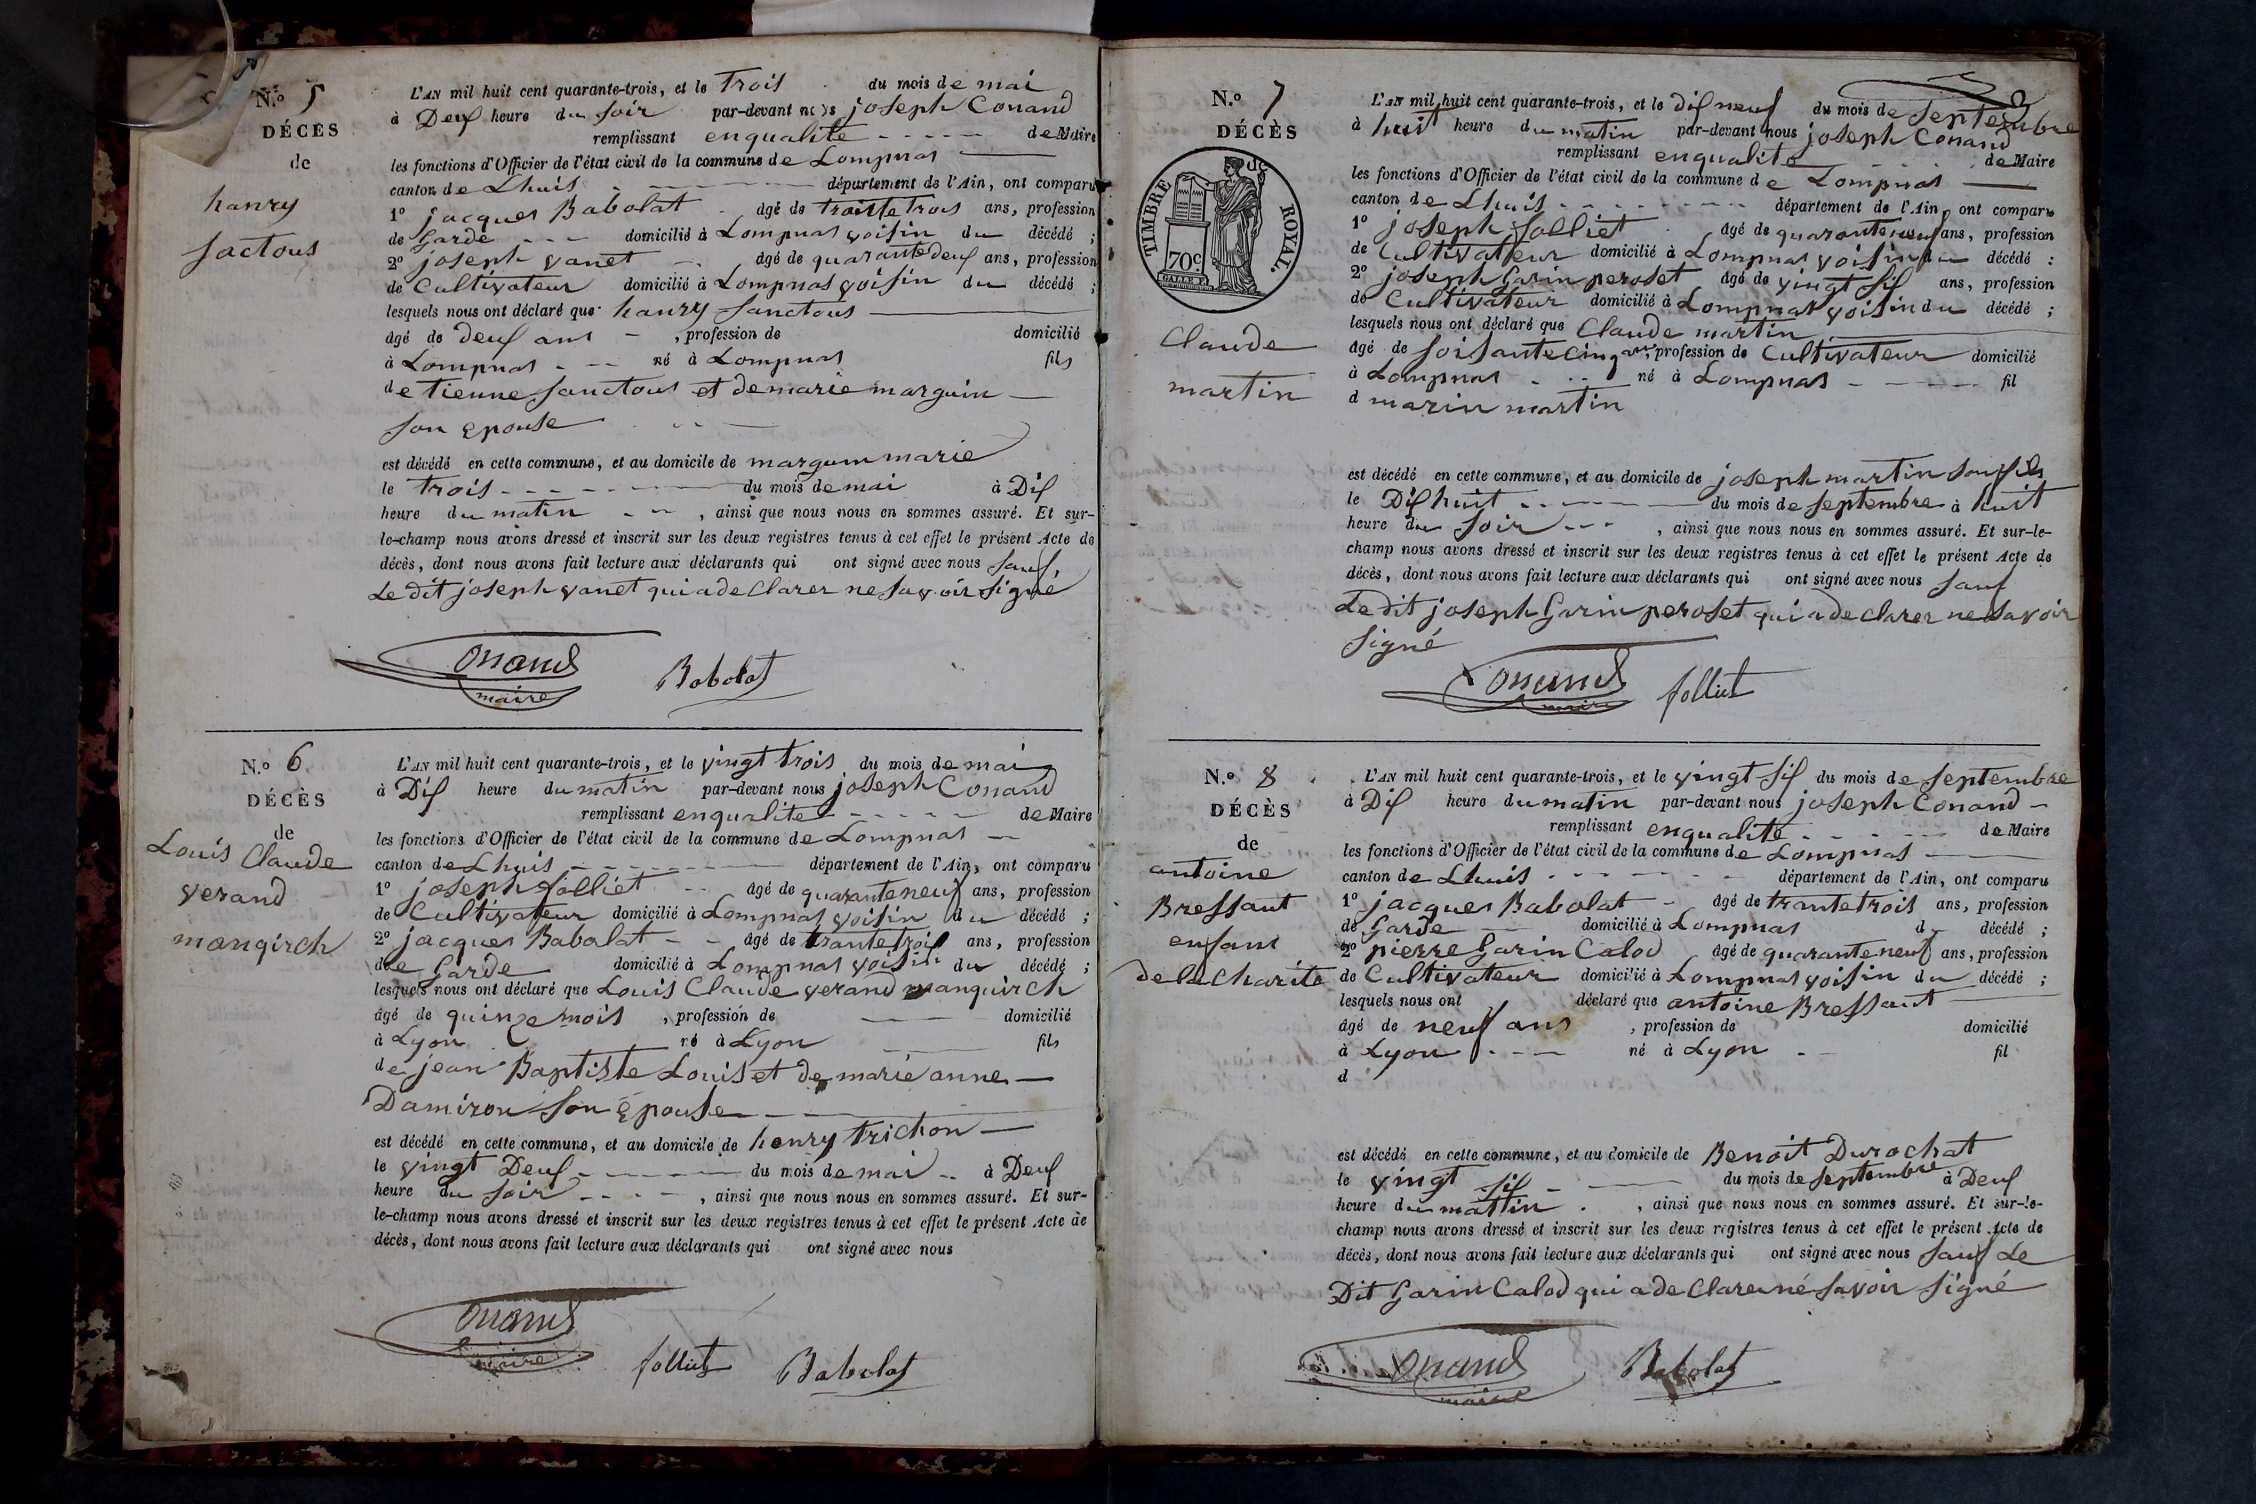 N.º 5
DÉCÈS
de
hanry
sactous
L'AN mil huit cent quarante-trois, et le Trois du mois de mai
à Deux heure du soir par-devant nous joseph Conand
remplissant enqualité de Maire
les fonctions d'Officier de l'état civil de la commune de Lompnas
canton de Lhuis département de l'Ain, ont comparu
1º jacques Babolat âgé de trantetrois ans, profession
de Garde domicilié à Lompnas voisin du décédé ;
2º joseph vanet âgé de quarantedeux ans, profession
de Cultivateur domicilié à Lompnas voisin du décédé ;
lesquels nous ont déclaré que hanry sanctous
âgé de deux ans , profession de domicilié
à Lompnas né à Lompnas fils
de tienne sanctous et de marie marguin
son epouse
est décédé en cette commune, et au domicile de marguin marie
le trois du mois de mai à Dix
heure du matin , ainsi que nous nous en sommes assuré. Et sur-
le-champ nous avons dressé et inscrit sur les deux registres tenus à cet effet le présent Acte de
décès, dont nous avons fait lecture aux déclarants qui ont signé avec nous sauf,
Le dit joseph vanet qui a de clarer ne savoir signé
Conand
maire
Babolat
N.º 6
DÉCÈS
de
Louis Claude
verand
mangirch
L'AN mil huit cent quarante-trois, et le vingt trois du mois de mai
à Dix heure du matin par-devant nous joseph Conand
remplissant enqualité de Maire
les fonctions d'Officier de l'état civil de la commune de Lompnas
canton de Lhuis département de l'Ain, ont comparu
1º joseph folliet âgé de quaranteneuf ans, profession
de Cultivateur domicilié à Lompnas voisin du décédé ;
2º jacques Babolat âgé de trantetrois ans, profession
de Garde domicilié à Lompnas voisin du décédé ;
lesquels nous ont déclaré que Louis Claude verand manguirch
âgé de quinze mois , profession de domicilié
à Lyon né à Lyon fils
de jean Baptiste Louis et de marie anne
Damiron son épouse
est décédé en cette commune, et au domicile de henry trichon
le vingt Deux du mois de mai à Deux
heure du soir , ainsi que nous nous en sommes assuré. Et sur-
le-champ nous avons dressé et inscrit sur les deux registres tenus à cet effet le présent Acte de
décès, dont nous avons fait lecture aux déclarants qui ont signé avec nous
Conand
maire
folliet
Babolat
N.º 7
DÉCÈS
TIMBRE ROYAL.
70c
Claude
martin
L'AN mil huit cent quarante-trois, et le dix neuf du mois de septembre
à huit heure du matin par-devant nous joseph Conand
remplissant enqualité de Maire
les fonctions d'Officier de l'état civil de la commune de Lompnas
canton de Lhuis département de l'Ain, ont comparu
1º joseph folliet âgé de quaranteneuf ans, profession
de Cultivateur domicilié à Lompnas voisin du décédé ;
2º joseph Garin peroset âgé de vingt six ans, profession
de Cultivateur domicilié à Lompnas voisin du décédé ;
lesquels nous ont déclaré que Claude martin
âgé de soisantecinq ans, profession de Cultivateur domicilié
à Lompnas né à Lompnas fil
d marin martin
est décédé en cette commune, et au domicile de joseph martin son fils
le Dix huit du mois de septembre à huit
heure du soir , ainsi que nous nous en sommes assuré. Et sur-le-
champ nous avons dressé et inscrit sur les deux registres tenus à cet effet le présent Acte de
décès, dont nous avons fait lecture aux déclarants qui ont signé avec nous sauf
Le dit joseph Garin peroset qui a de clarer ne savoir
signé
Conand
maire
folliet
N.º 8
DÉCÈS
de
antoine
Bressant
enfant
de la Charite
L'AN mil huit cent quarante-trois, et le vingt six du mois de septembre
à Dix heure du matin par-devant nous joseph Conand
remplissant enqualité de Maire
les fonctions d'Officier de l'état civil de la commune de Lompnas
canton de Lhuis département de l'Ain, ont comparu
1º jacques Babolat âgé de trantetrois ans, profession
de Garde domicilié à Lompnas d décédé ;
2º pierre Garin Calod âgé de quaranteneuf ans, profession
de Cultivateur domicilié à Lompnas voisin du décédé ;
lesquels nous ont déclaré que antoine Bressant
âgé de neuf ans , profession de domicilié
à Lyon né à Lyon fil
d
est décédé en cette commune, et au domicile de Benoit Durochat
le vingt six du mois de septembre à Deux
heure du matin , ainsi que nous nous en sommes assuré. Et sur-le-
champ nous avons dressé et inscrit sur les deux registres tenus à cet effet le présent Acte de
décès, dont nous avons fait lecture aux déclarants qui ont signé avec nous sauf Le
Dit Garin Calod qui a de Clarer né savoir signé
Conand
maire
Babolat